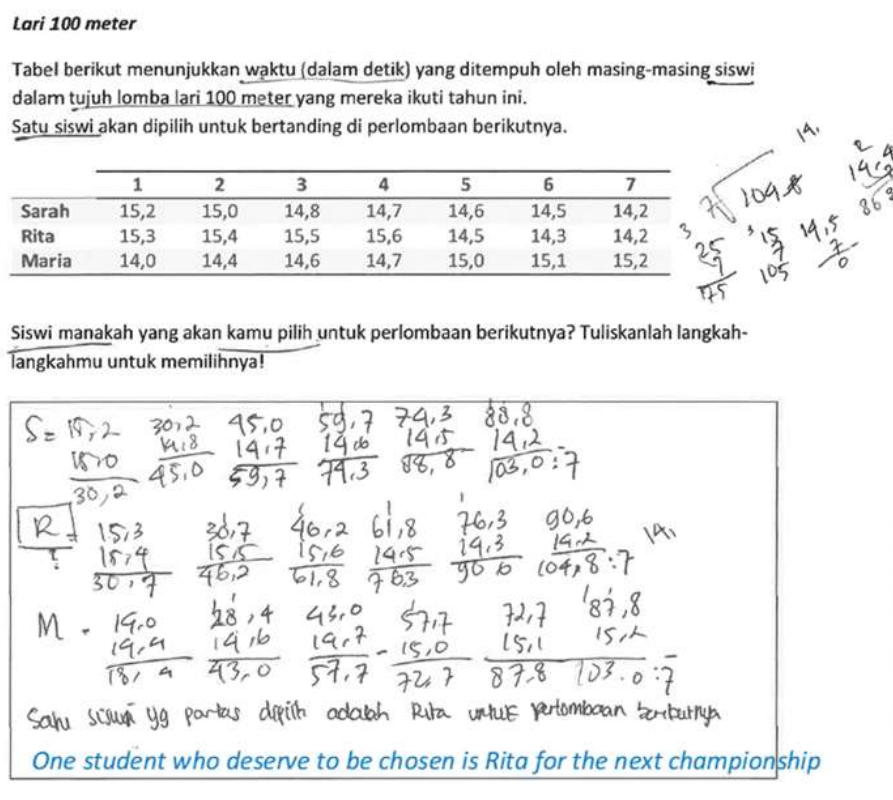 Lari 100 meter
Tabel berikut menunjukkan waktu (dalam detik) yang ditempuh oleh masing-masing siswi
dalam tujuh lomba lari 100 meter yang mereka ikuti tahun ini.
Satu siswi akan dipilih untuk bertanding di perlombaan berikutnya.
1 2 3 4 5 6 7
Sarah 15,2 15,0 14,8 14,7 14,6 14,5 14,2
Rita 15,3 15,4 15,5 15,6 14,5 14,3 14,2
Maria 14,0 14,4 14,6 14,7 15,0 15,1 15,2
14,
7 104,8
3 25 7 175
3 15 7 105
14,5 7 0
Siswi manakah yang akan kamu pilih untuk perlombaan berikutnya? Tuliskanlah langkah-
langkahmu untuk memilihnya!
S = 15,2 30,2 45,0 59,7 74,3 88,8
15,0 14,8 14,7 14,6 14,5 14,2
30,2 45,0 59,7 74,3 88,8 103,0 : 7
R = 15,3 30,7 46,2 61,8 76,3 90,6
15,4 15,5 15,6 14,5 14,3 14,2 14,
30,7 46,2 61,8 763 90 6 104,8 : 7
M = 14,0 28,4 43,0 57,7 72,7 87,8
14,4 14,6 14,7 15,0 15,1 15,2
18,4 43,0 57,7 72,7 87,8 103.0 : 7
Satu siswi yg pantas dipilih adalah Rita untuk perlombaan berikutnya
One student who deserve to be chosen is Rita for the next championship